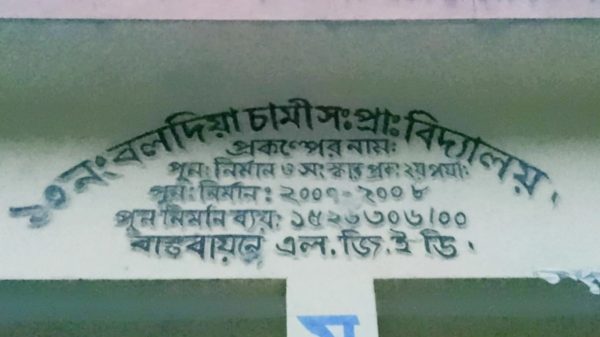 ১৩ নং বলদিয়া চামী সঃ প্রাঃ বিদ্যালয়।
প্রকল্পের নামঃ
পুনঃ নির্মান ও সংস্কার প্রকঃ ২য় পর্যাঃ
পুনঃ নির্মান : ২০০৭-২০০৮
পুন নির্মান ব্যয়ঃ ১৫২৬৩০৬/০০
বাস্তবায়নে এল.জি.ই ডি.
ম